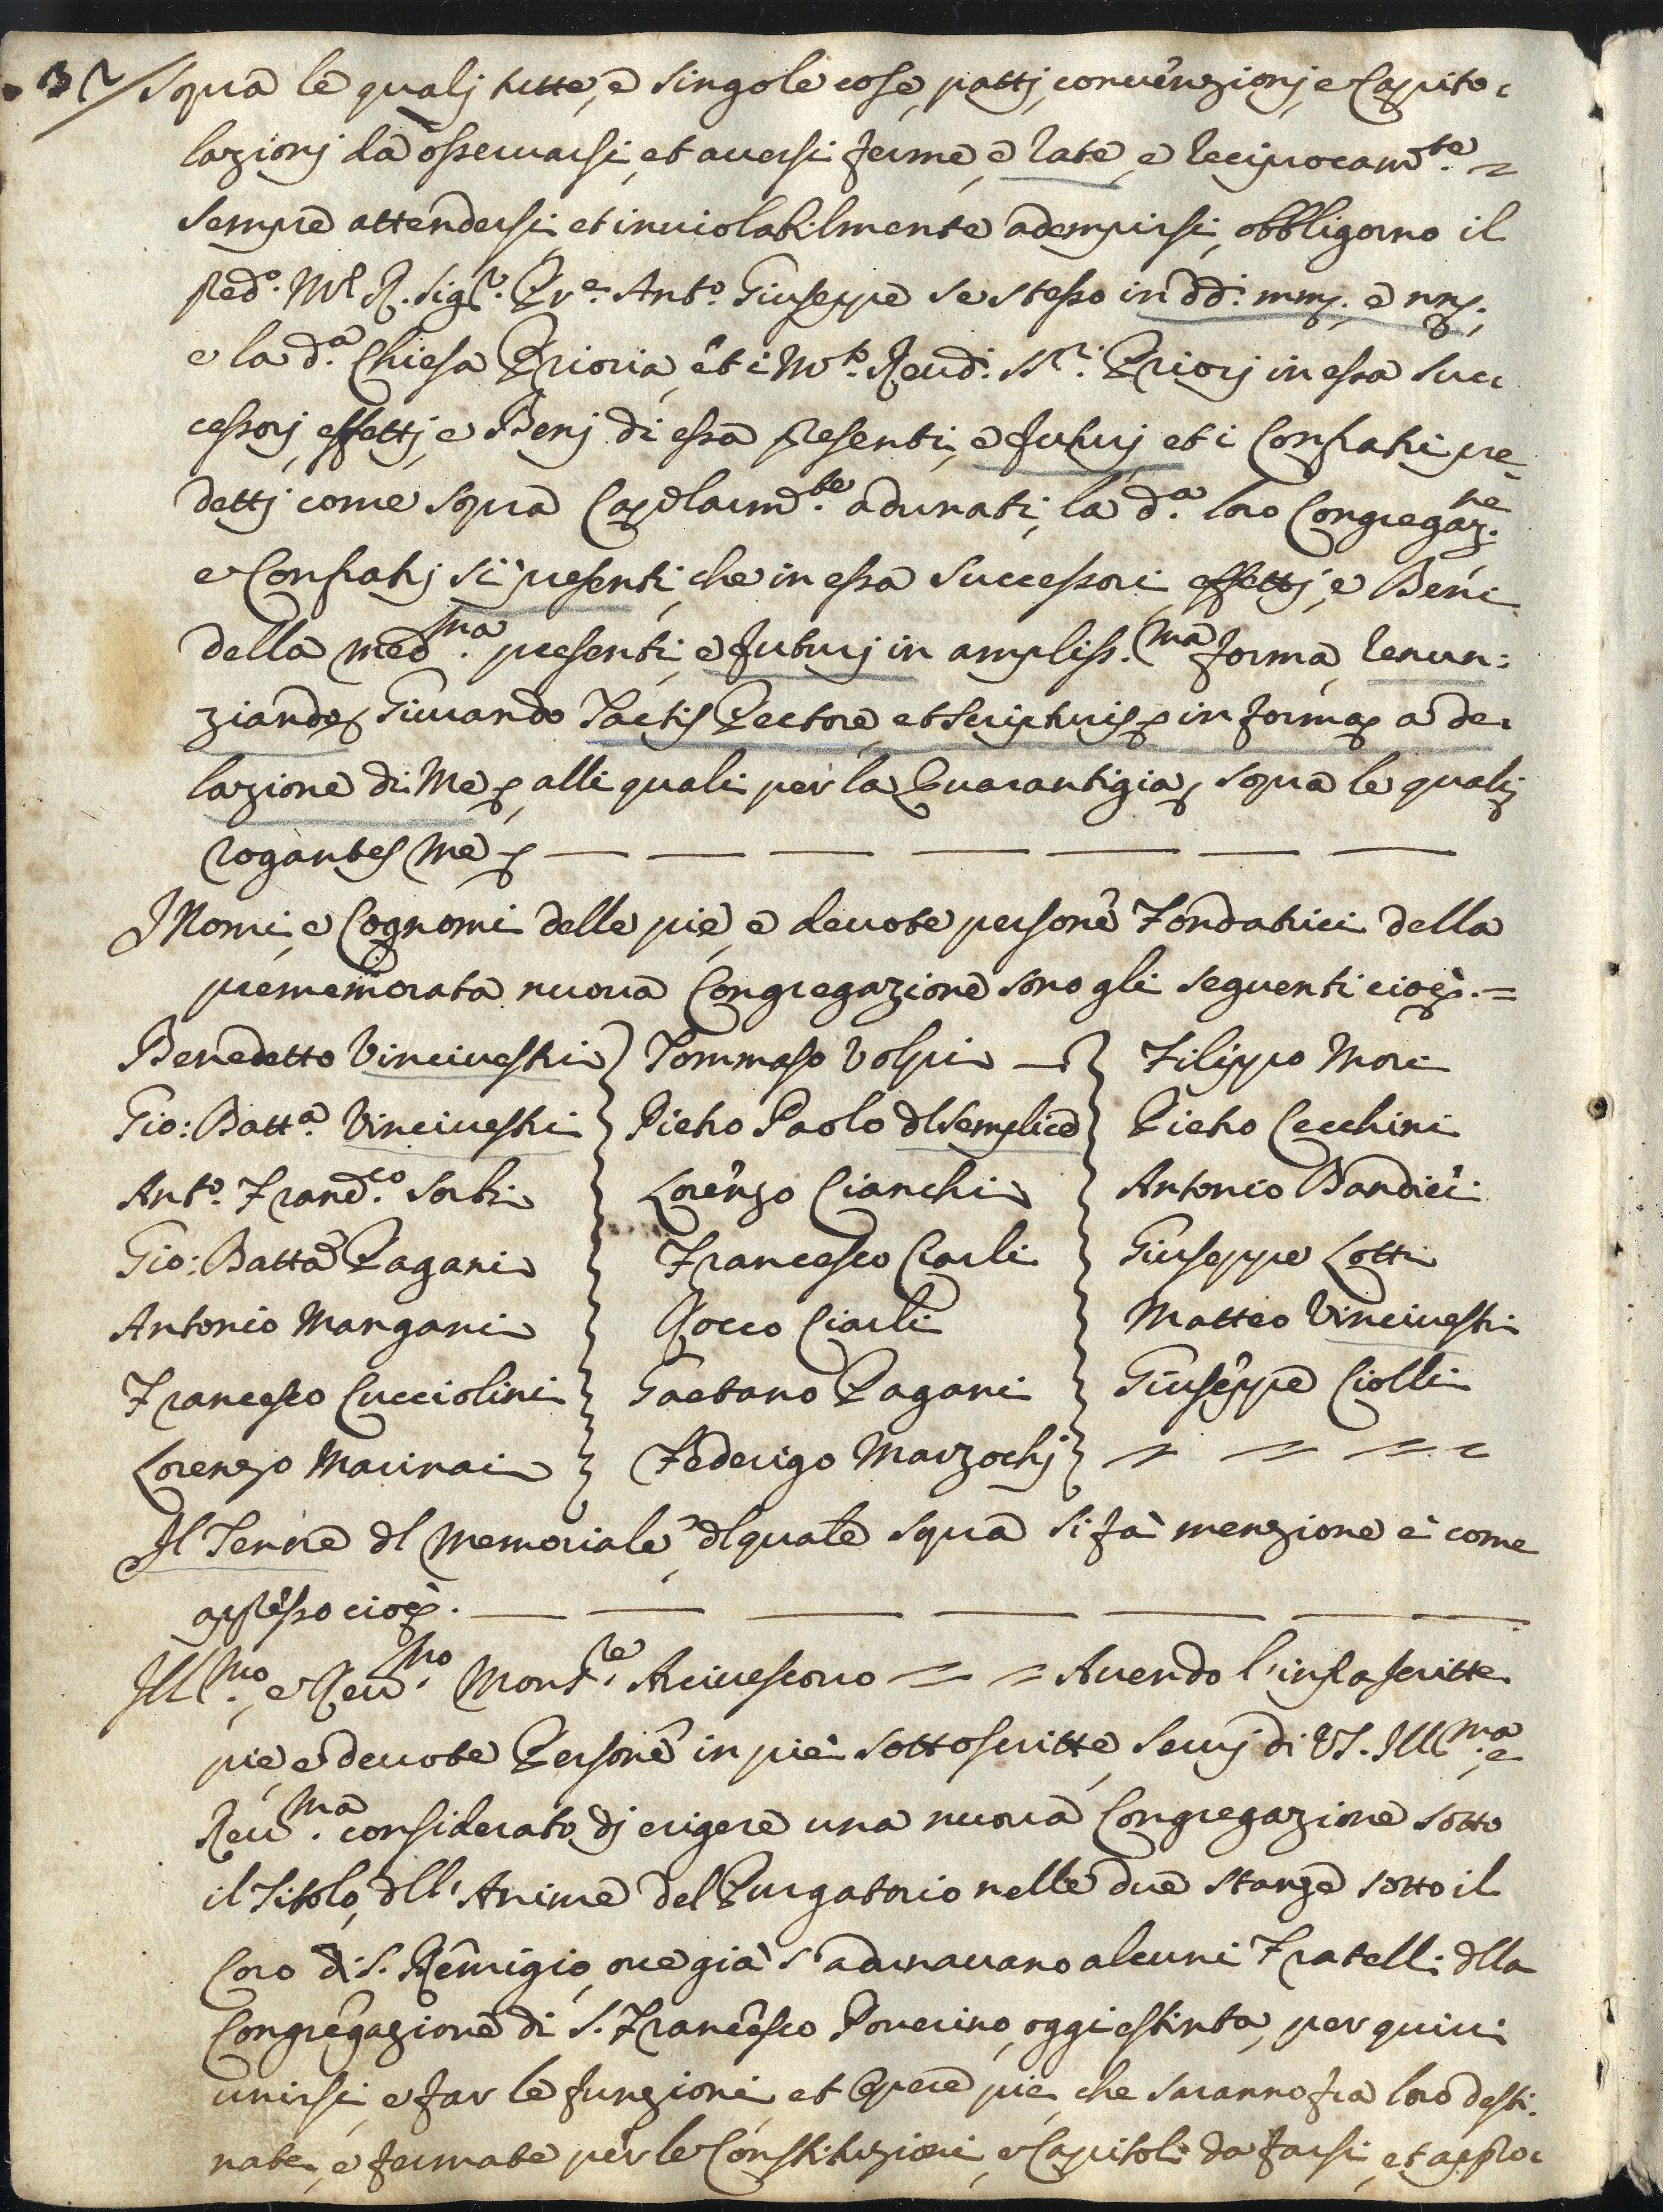 Sopra le qualj tutte, e singole cose, pattj, convenzionj, e Capito-
lazionj da osservarsi, et aversi ferme, e rate, e reciprocam.te =
sempre attendersi et inviolabilmente adempirsi, obbligorno il
Pred.o M.R. Sig.r Pr.e Ant.o Giuseppe se stesso in dd.i mm. e nn.
e la d.a Chiesa Prioria, et i M.to Revd.i SS.ri Priorj in essa suc-
cessorj, effettj, e Benj di essa presenti, e futurj et i Confratri pre-
dettj come sopra Cap.larm.te adunati, la d.a loro Congregaz.ne
e Confratrj si presenti, che in essa successori effettj, e Beni
della med.ma presenti, e futurj in ampliss.ma forma, renun:
ziando Giurando Tactis Pectore, et Scripturis in forma a de-
lazione di Me, alli quali per la Guarantigia, sopra le qualj
rogantes me
I Nomi, e Cognomi delle pie, e devote persone Fondatrici della
prememorata nuova Congregazione sono gli seguenti cioè. =
Benedetto Vincivestri Tommaso Volpi Filippo Mori
Gio: Batt.a Vincivestri Pietro Paolo dl Semplice Pietro Cecchini
Ant.o Franc.co Sorbi Lorenzo Cianchi Antonio Bandici
Gio: Batta Pagani Francesco Ciarli Giuseppe Lotti
Antonio Mangani Rocco Ciarli Matteo Vincivestri
Francesco Cucciolini Gaetano Pagani Giuseppe Ciolli
Lorenzo Marinai Federigo Marzochj
Il Tenore dl Memoriale, dl quale sopra si fà menzione è come
appresso cioè.
Ill.mo, e Rev.mo Mons.re Arcivescovo = = Avendo l'infrascritte
pie, e devote Persone in piè sottoscritte, Servj di VS. Ill.ma e
Rev.ma considerato dj erigere una nuova Congregazione sotto
il Titolo, dll' Anime del Purgatorio nelle due stanze sotto il
Coro di S. Remigio, ove già s'adunavano alcuni Fratelli dlla
Congregazione di S. Francesco Poverino, oggi estinta, per quivi
unirsi, e far le funzioni, et Opere pie, che saranno fra loro desti-
nate, e fermate per le Constituzioni, e Capitoli da farsi, et appro-